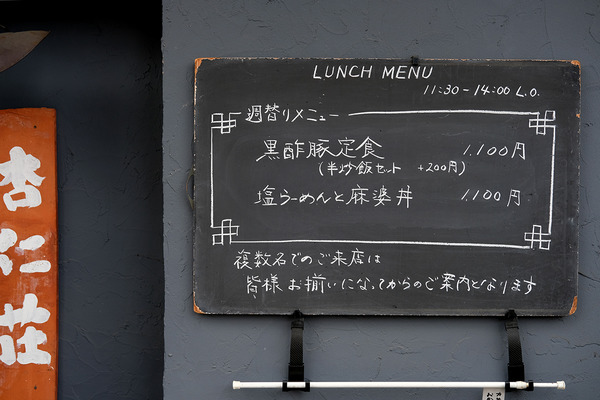 LUNCH MENU
11:30-14:00 L.O.
週替りメニュー
黒酢豚定食 1,100円
(半炒飯セット +200円)
塩らーめんと麻婆丼 1,100円
複数名でのご来店は
皆様お揃いになってからのご案内となります
杏仁荘